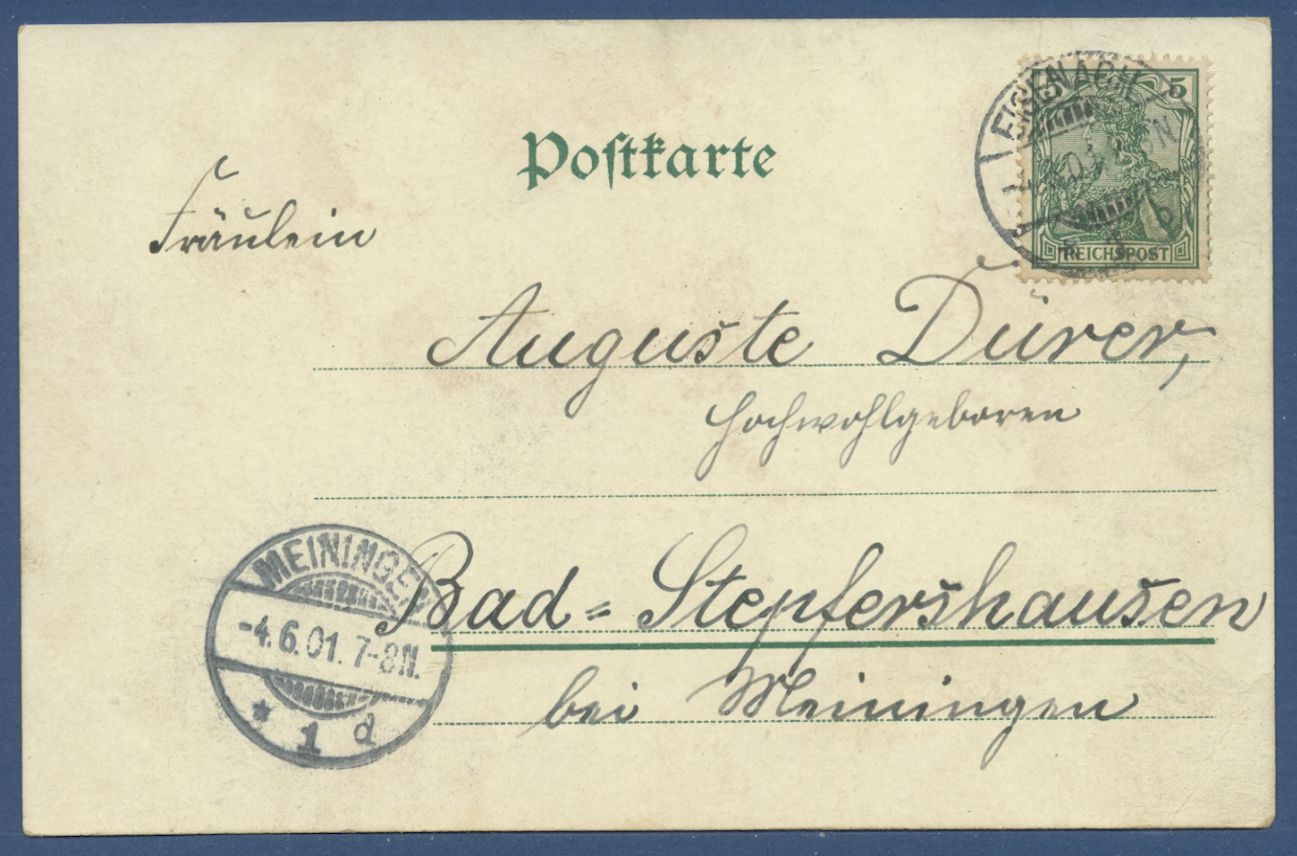 Postkarte
EISENACH
5
REICHSPOST
Fräulein
Auguste Dürer,
Hochwohlgeboren
MEININGEN
-4.6.01. 7-8N.
* 1 d
Bad = Stepfershausen
bei Meiningen